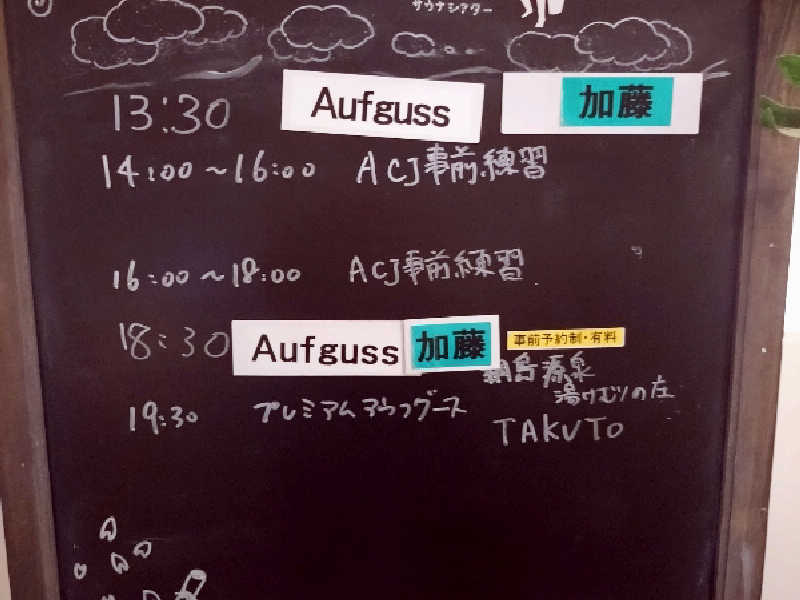 サウナシアター
13:30 Aufguss 加藤
14:00～16:00 ACJ事前練習
16:00～18:00 ACJ事前練習
18:30 Aufguss 加藤 事前予約制・有料
源泉
湯けむりの庄
19:30 プレミアムアウフグース
TAKUTO